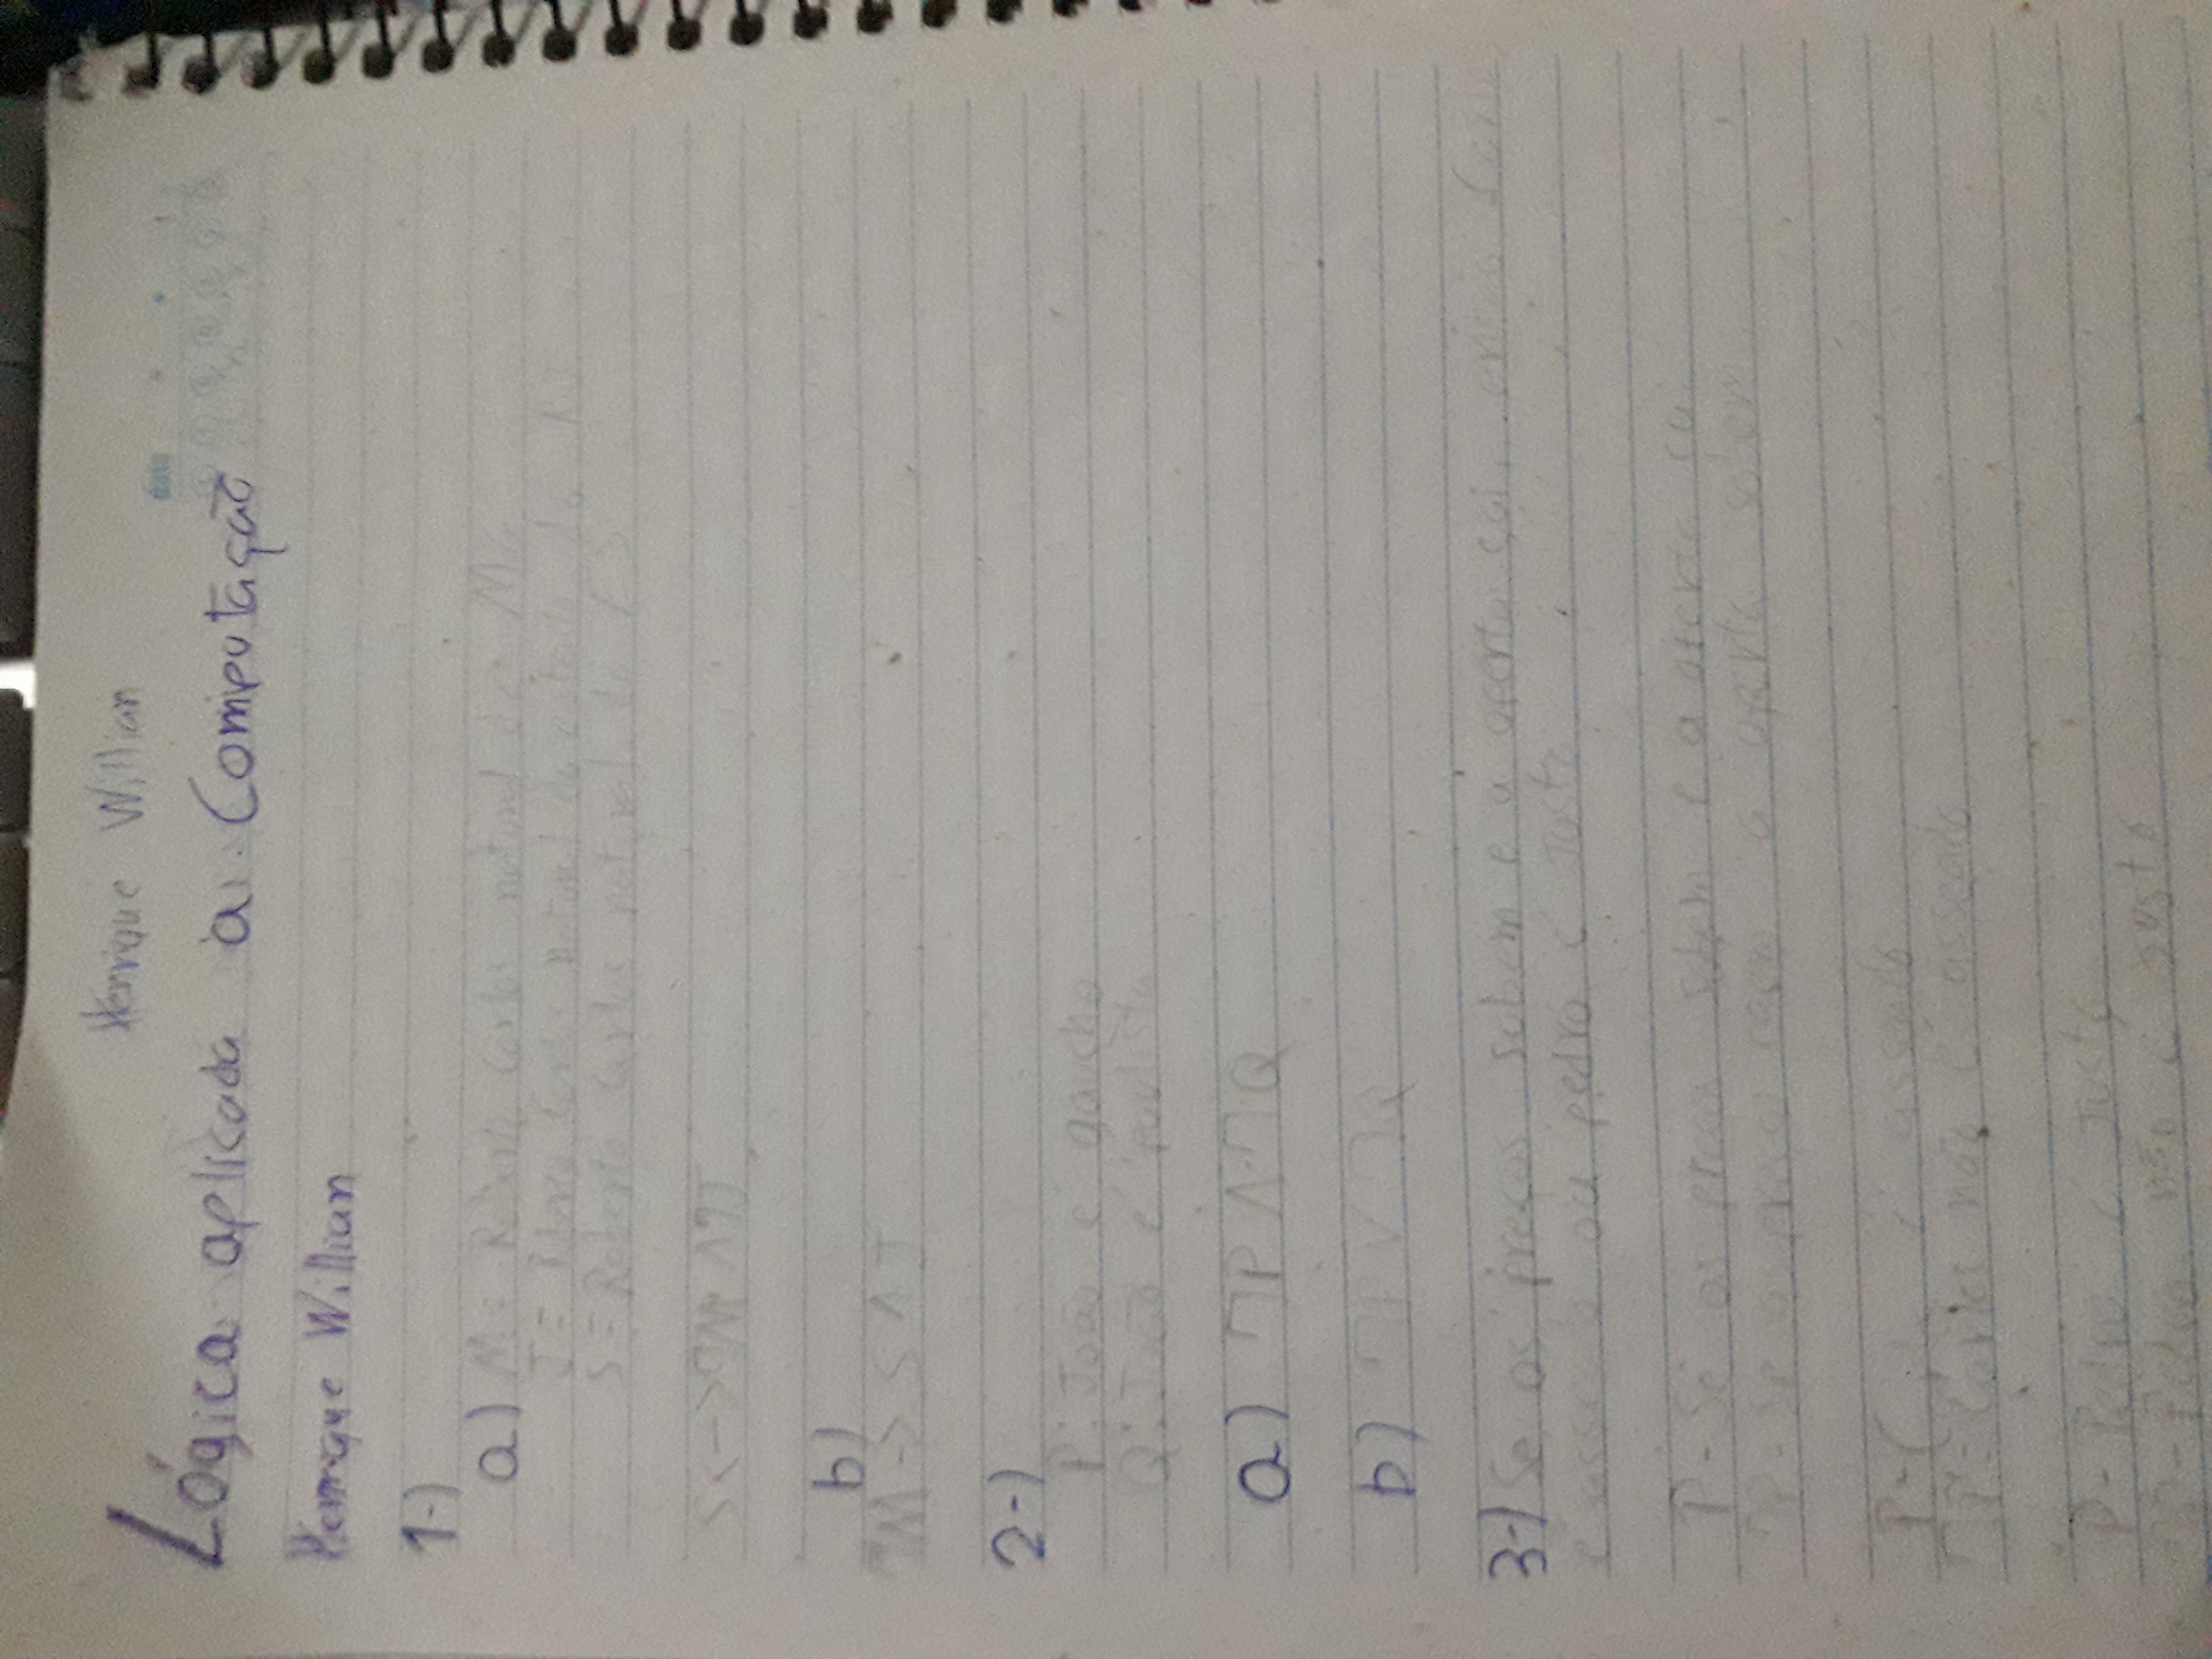 Henrique Willian
data
Lógica aplicada a Computação
Henrique Willian
1-)
a) M ≡ Roberto Carlos natural de MG
J ≡ Roberto Carlos natural do estado do RJ
S ≡ Roberto Carlos natural do ES
S<->¬M ∧¬J
b)
¬M -> S ∧ J
2-)
P: João é gaucho
Q: João é paulista
a) ¬P ∧ ¬Q
b) ¬P V ¬Q
3-) Se os preços sobem e a oferta cai, então
é asseado ou pedro é Justo
P - Se os preços sobem e a oferta cai
¬P - Se os preços caem a oferta sobem
P - é asseado
¬P - Carlos não é asseado
P - Pedro é Justo
¬P - Pedro não é Justo